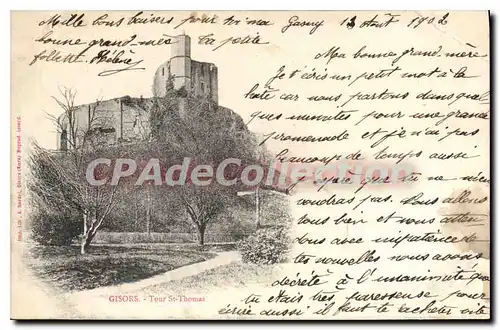 Mille bons baisers pour toi ma
bonne grand-mère ta petite
follette Hélène
Gasny 13 Août 1902
Ma bonne grand-mère
Je t'écris un petit mot à la
hâte car nous partons dans quelques
minutes pour une grande
promenade et je n'ai pas
beaucoup de temps aussi
j'espère que tu ne m'en
voudras pas. Nous allons
tous bien et nous attendons
tous avec impatience de
tes nouvelles nous avons
décrété à l'unanimité que
tu étais très paresseuse pour
écrire aussi il faut te
CPArama.com
GISORS. - Tour St-Thomas